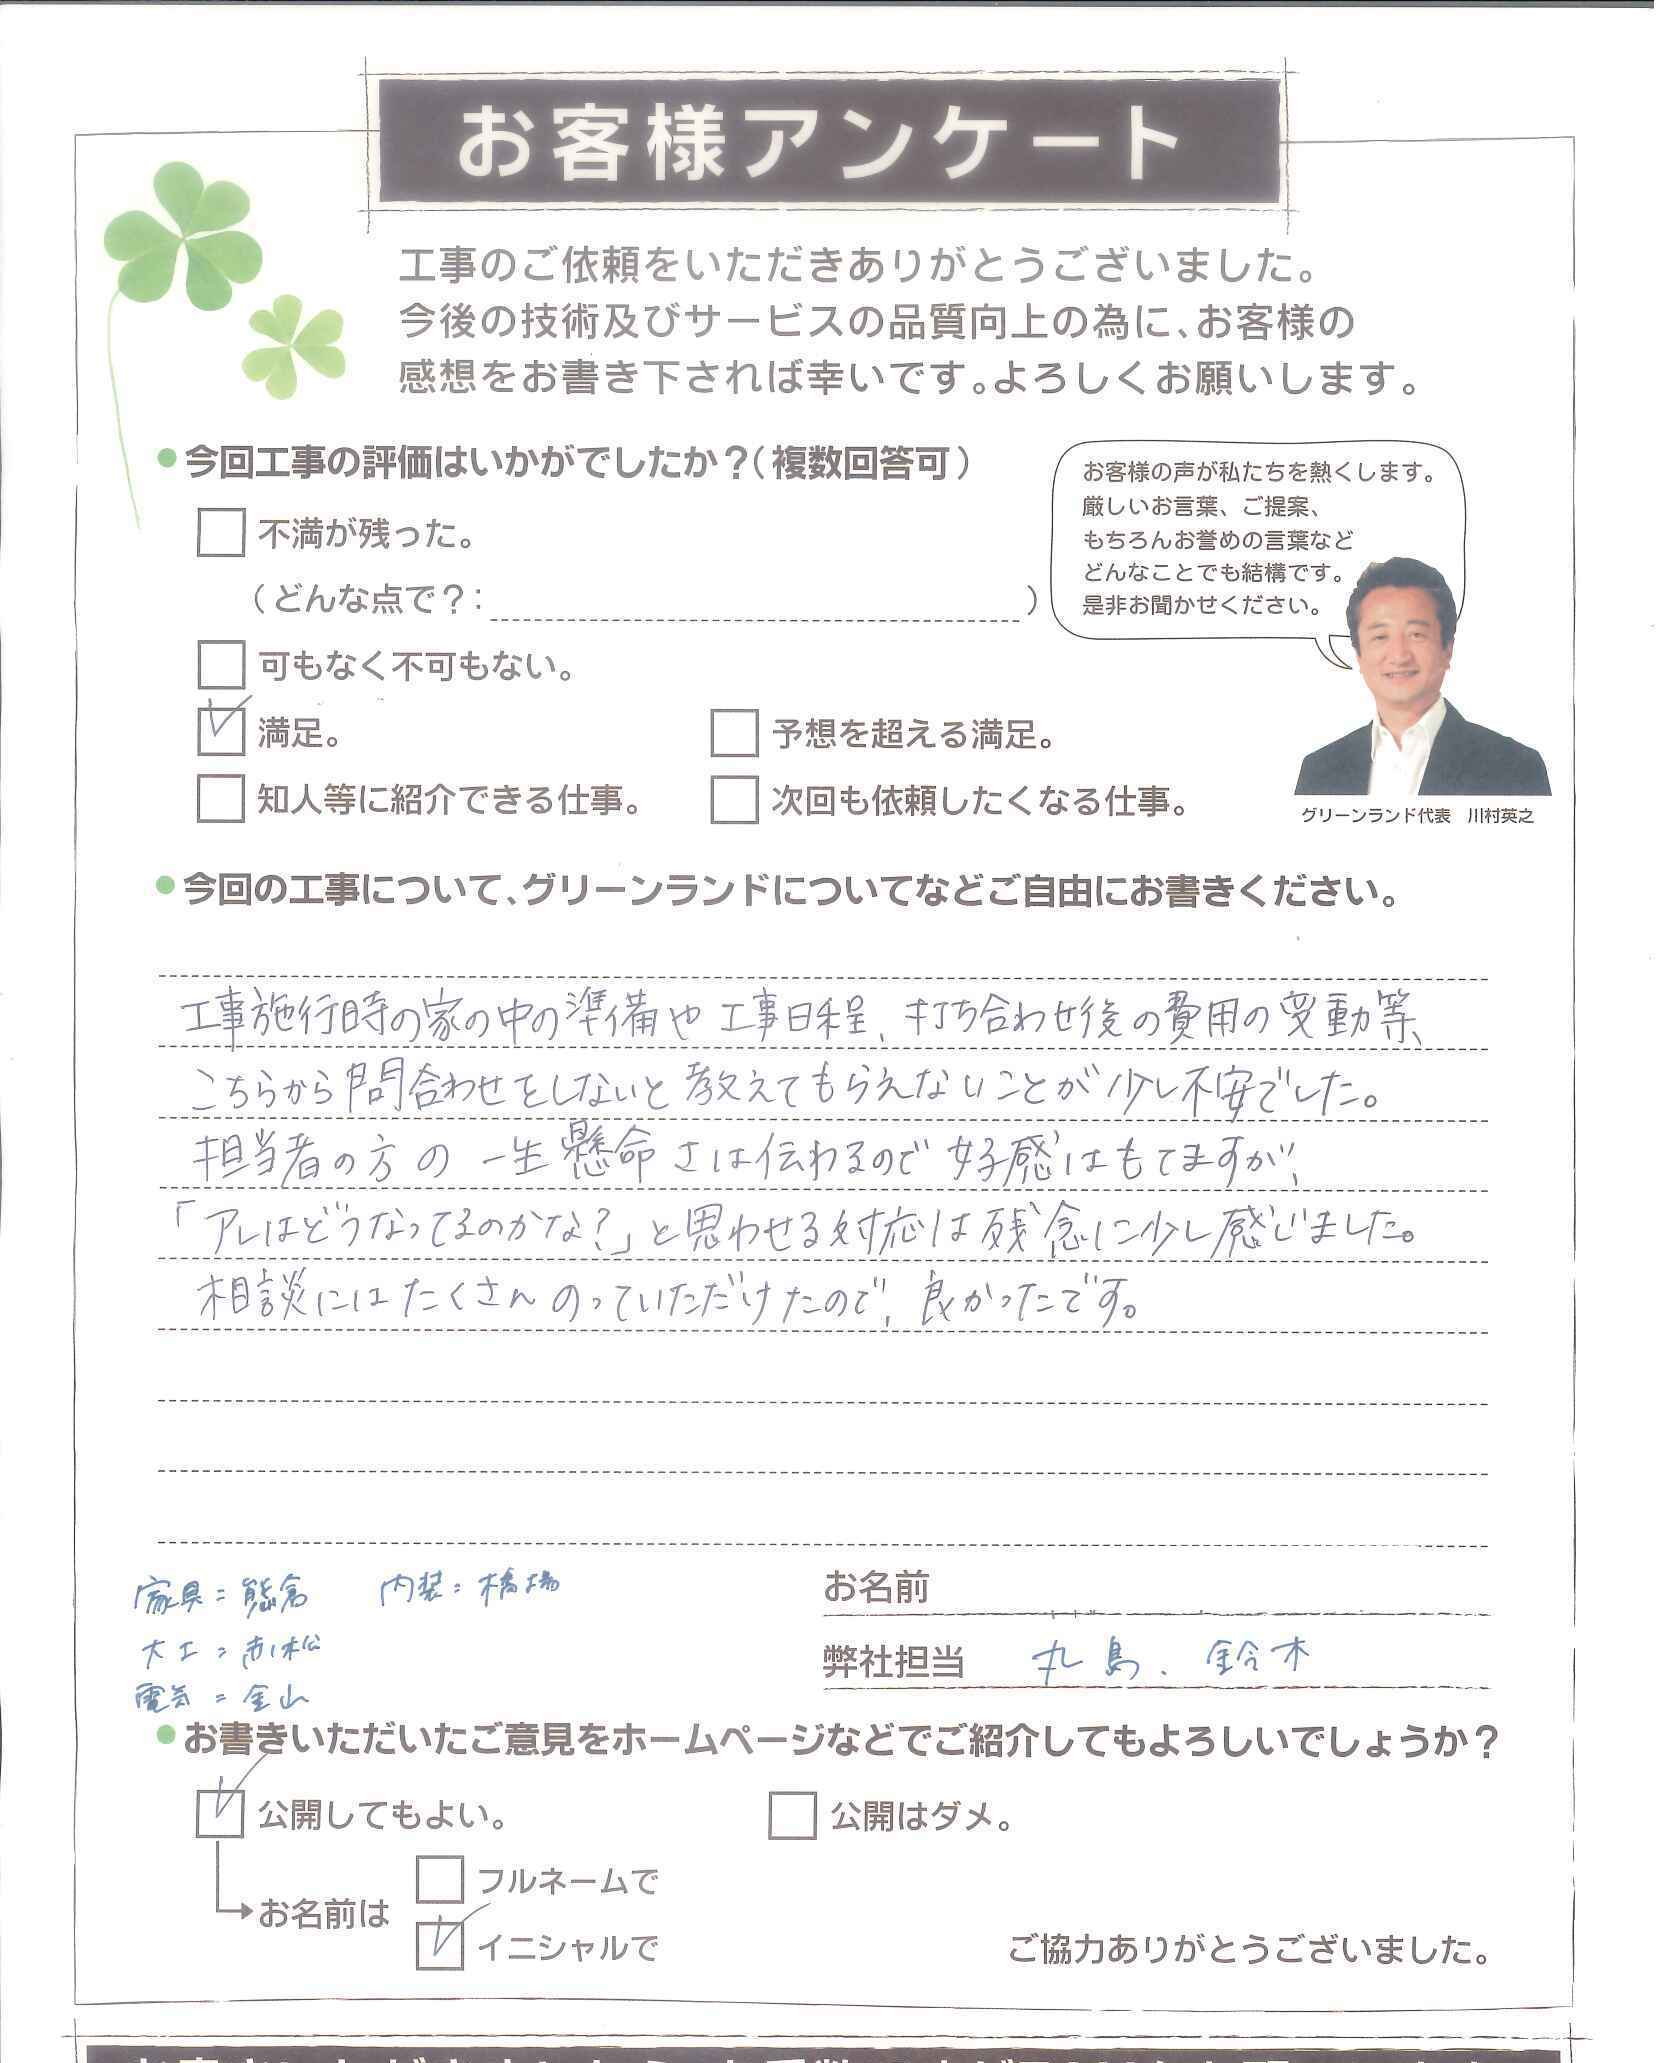 お客様アンケート
工事のご依頼をいただきありがとうございました。
今後の技術及びサービスの品質向上の為に、お客様の
感想をお書き下されば幸いです。よろしくお願いします。
●今回工事の評価はいかがでしたか？（複数回答可）
お客様の声が私たちを熱くします。
厳しいお言葉、ご提案、
もちろんお誉めの言葉など
どんなことでも結構です。
是非お聞かせください。
不満が残った。
（どんな点で？： ）
可もなく不可もない。
満足。 予想を超える満足。
知人等に紹介できる仕事。 次回も依頼したくなる仕事。
グリーンランド代表 川村英之
●今回の工事について、グリーンランドについてなどご自由にお書きください。
工事施行時の家の中の準備や工事日程、打ち合わせ後の費用の変動等、
こちらから問合わせをしないと教えてもらえないことが少し不安でした。
担当者の方の一生懸命さは伝わるので好感はもてますが、
「アレはどうなってるのかな？」と思わせる対応は残念に少し感じました。
相談にはたくさんのっていただけたので、良かったです。
家具＝熊倉 内装＝橋場
大工＝赤松
電気＝金山
お名前
弊社担当 丸島、鈴木
●お書きいただいたご意見をホームページなどでご紹介してもよろしいでしょうか？
公開してもよい。 公開はダメ。
お名前は
フルネームで
イニシャルで
ご協力ありがとうございました。